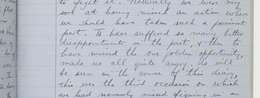 to forget it. Naturally we were very
not being in an action when
we should have taken such a prominent
part. To have suffered so many bitter
disappointments in the past, & then to
have missed the one golden opportunity
made us all quite angry. As will
be seen in the course of this diary,
this was the third occasion on which
we had narrowly missed in an